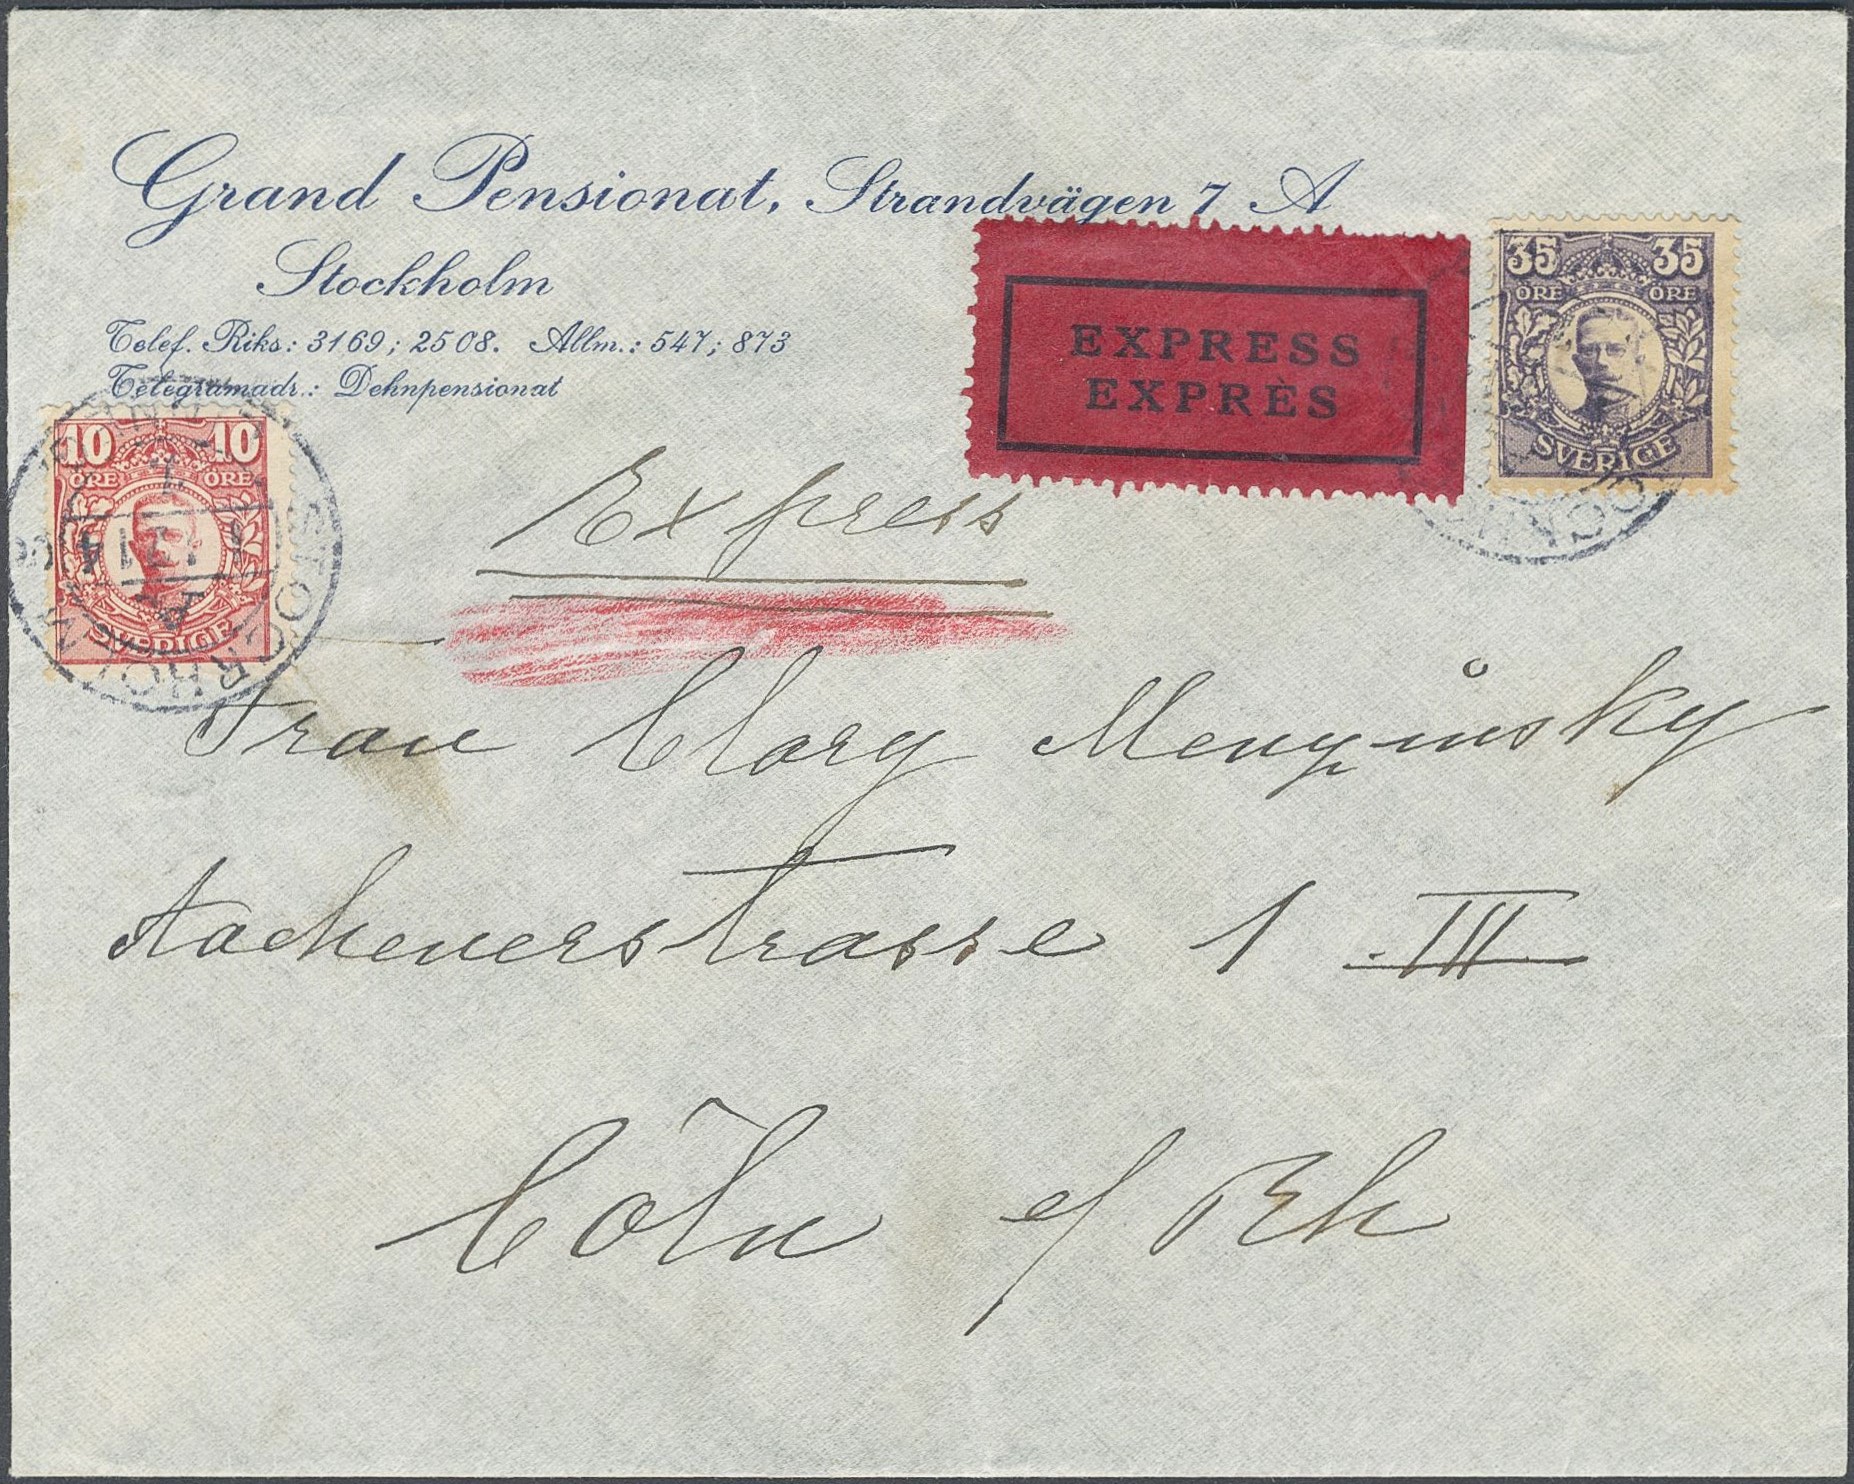 Grand Pensionat, Strandvägen 7 A
Stockholm
Telef. Riks: 3169; 2508. Allm.: 547; 873
Telegramadr.: Dehnpensionat
EXPRESS
EXPRÈS
35 35
ÖRE ÖRE
SVERIGE
10 10
ÖRE ÖRE
SVERIGE
STOCKHOLM
Express
Frau Clary
Aachenerstrasse 1 III
Cöln a/ Rh